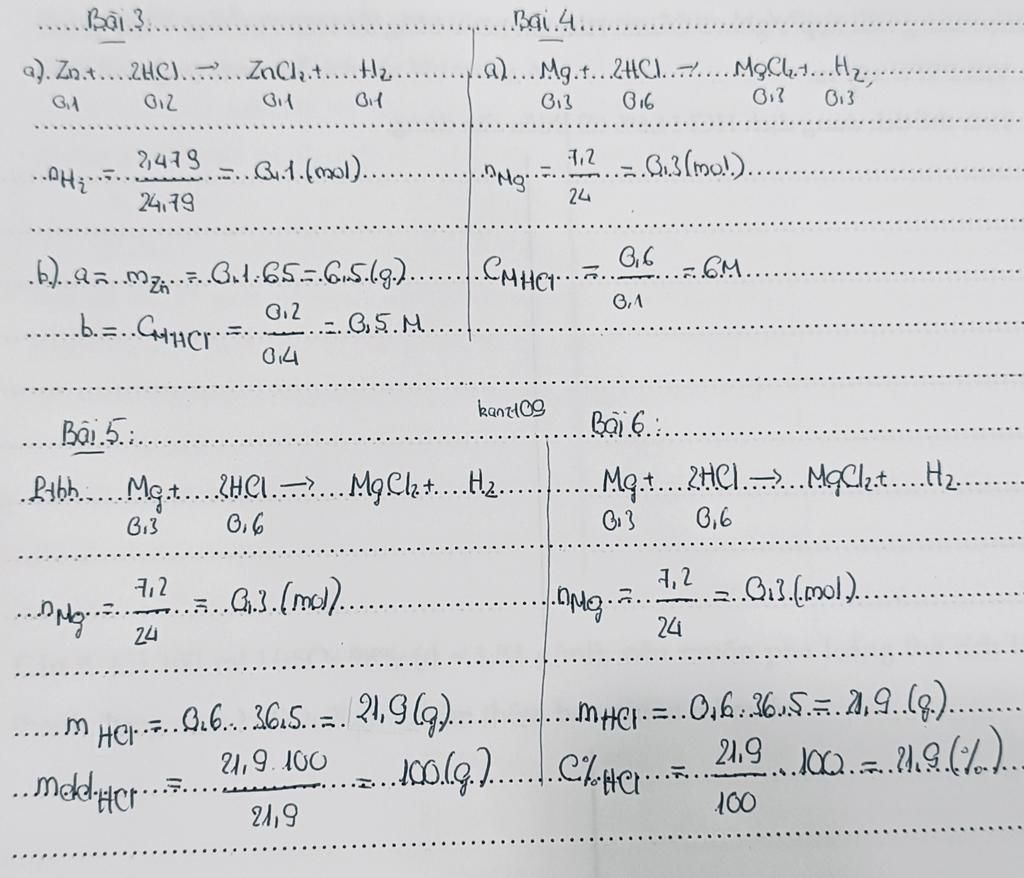 Bài 3:
a) Zn + 2HCl → ZnCl₂ + H₂
0,1 0,2 0,1 0,1
nH₂ = 2,479 / 24,79 = 0,1 (mol)
b) a = mZn = 0,1 . 65 = 6,5 (g)
b = CM HCl = 0,2 / 0,4 = 0,5 M
Bài 4
a) Mg + 2HCl → MgCl₂ + H₂
0,3 0,6 0,3 0,3
nMg = 7,2 / 24 = 0,3 (mol)
CM HCl = 0,6 / 0,1 = 6M
kanz109
Bài 5:
Pthh Mg + 2HCl → MgCl₂ + H₂
0,3 0,6
nMg = 7,2 / 24 = 0,3 (mol)
mHCl = 0,6 . 36,5 = 21,9 (g)
mdd HCl = 21,9 . 100 / 21,9 = 100 (g)
Bài 6:
Mg + 2HCl → MgCl₂ + H₂
0,3 0,6
nMg = 7,2 / 24 = 0,3 (mol)
mHCl = 0,6 . 36,5 = 21,9 (g)
C% HCl = 21,9 / 100 . 100 = 21,9 (%)